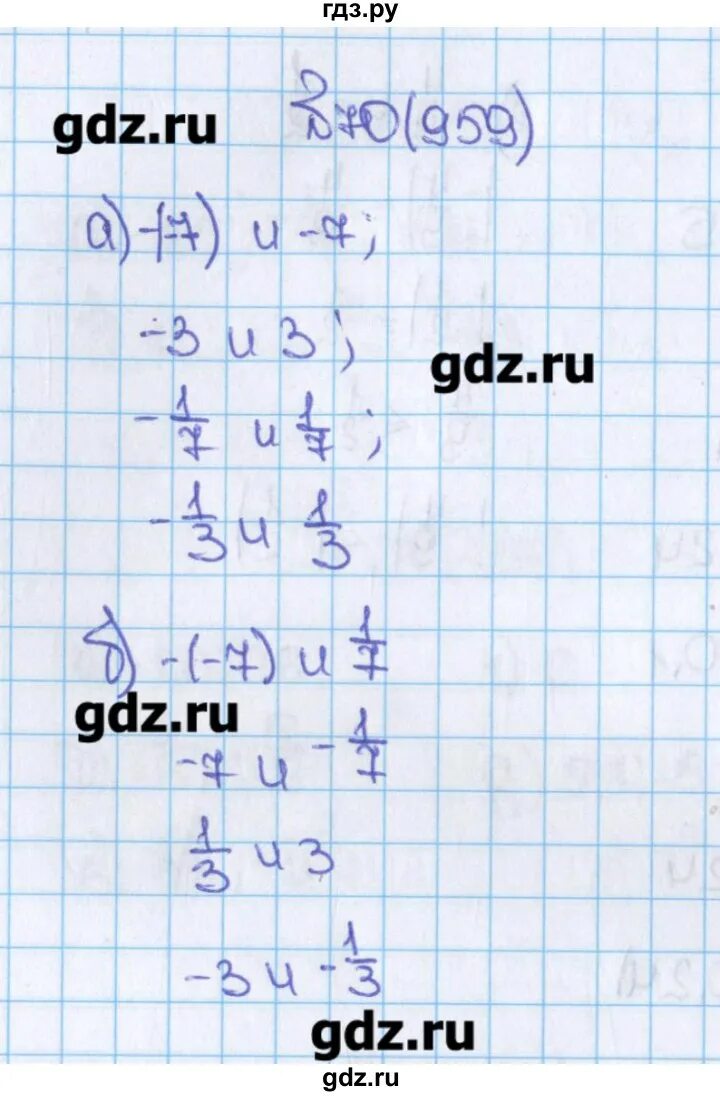 гдз.ру
№70(959)
gdz.ru
а) -(-7) и -7;
-3 и 3;
gdz.ru
-1/7 и 1/7;
-1/3 и 1/3
б) -(-7) и 1/7
gdz.ru
-7 и -1/7
1/3 и 3
-3 и -1/3
gdz.ru
gdz.ru